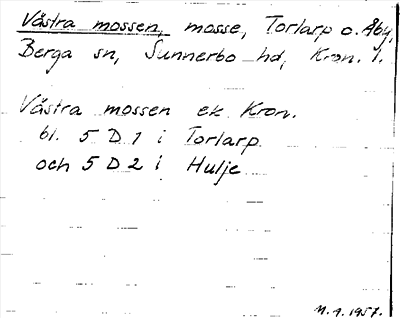 Västra mossen, mosse, Torlarp o. Åby,
Berga sn, Sunnerbo hd, Kron. l.
Västra mossen ek Kron.
bl. 5 D 1 i Torlarp
och 5 D 2 i Hulje
11.9.1957.